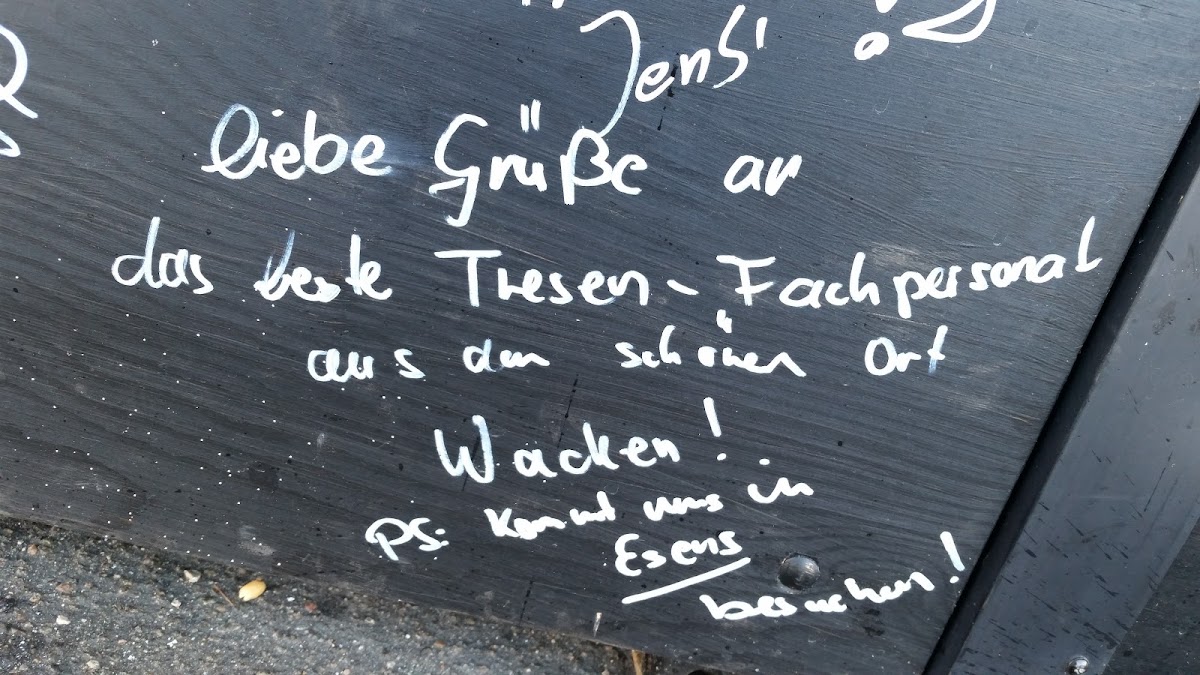 "Jens"
liebe Grüße an
das beste Tresen-Fachpersonal
aus dem schönen Ort
Wacken!
PS: Kommt uns in
Esens
besuchen!